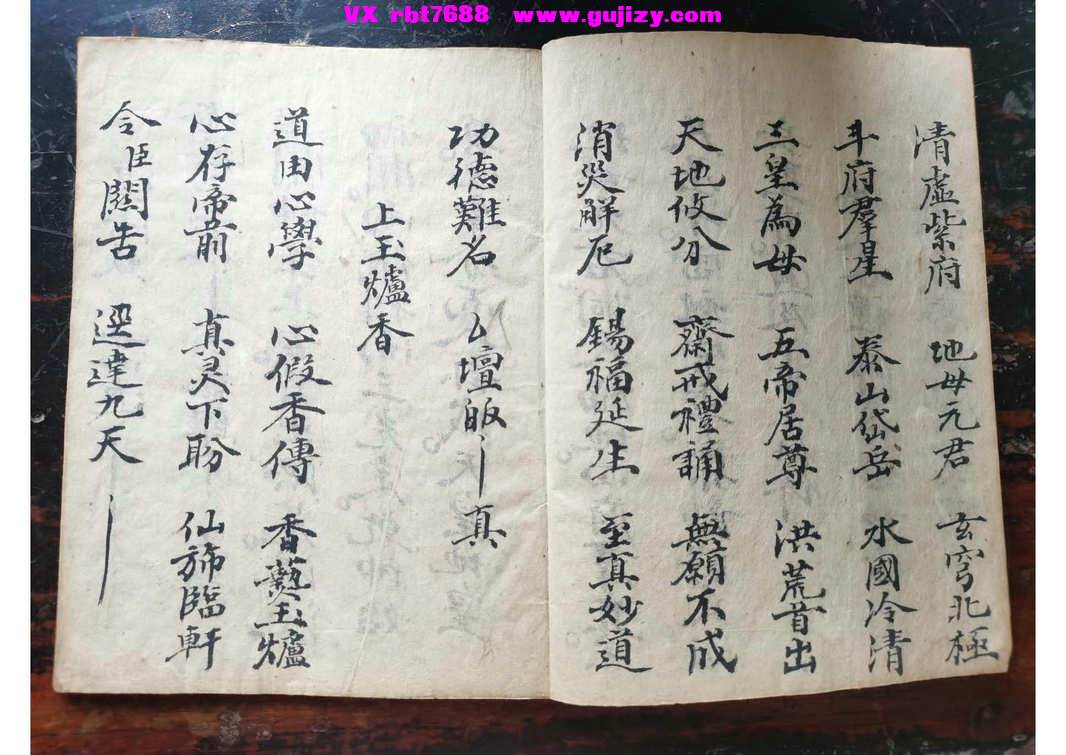 VX rbt7688 www.gujizy.com
清虛紫府 地母元君 玄穹北極
斗府羣星 泰山岱岳 水國冷清
三皇為母 五帝居尊 洪荒首出
天地攸分 齋戒禮誦 無願不成
消災解厄 錫福延生 至真妙道
功德難名 壇 真
上玉爐香
道由心學 心假香傳 香爇玉爐
心存帝前 真灵下盻 仙斾臨軒
令臣關告 逕達九天